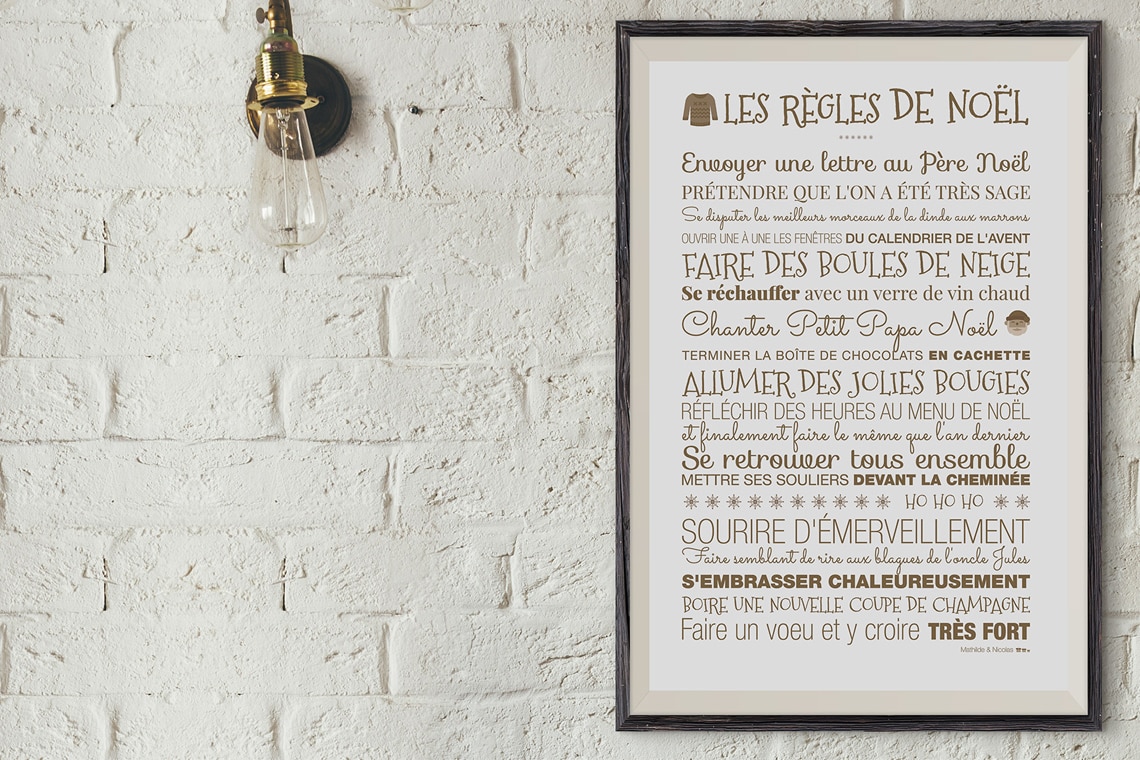 LES RÈGLES DE NOËL
Envoyer une lettre au Père Noël
PRÉTENDRE QUE L'ON A ÉTÉ TRÈS SAGE
Se disputer les meilleurs morceaux de la dinde aux marrons
OUVRIR UNE À UNE LES FENÊTRES DU CALENDRIER DE L'AVENT
FAIRE DES BOULES DE NEIGE
Se réchauffer avec un verre de vin chaud
Chanter Petit Papa Noël
TERMINER LA BOÎTE DE CHOCOLATS EN CACHETTE
ALLUMER DES JOLIES BOUGIES
RÉFLÉCHIR DES HEURES AU MENU DE NOËL
et finalement faire le même que l'an dernier
Se retrouver tous ensemble
METTRE SES SOULIERS DEVANT LA CHEMINÉE
HO HO HO
SOURIRE D'ÉMERVEILLEMENT
Faire semblant de rire aux blagues de l'oncle Jules
S'EMBRASSER CHALEUREUSEMENT
BOIRE UNE NOUVELLE COUPE DE CHAMPAGNE
Faire un voeu et y croire TRÈS FORT
Mathilde & Nicolas